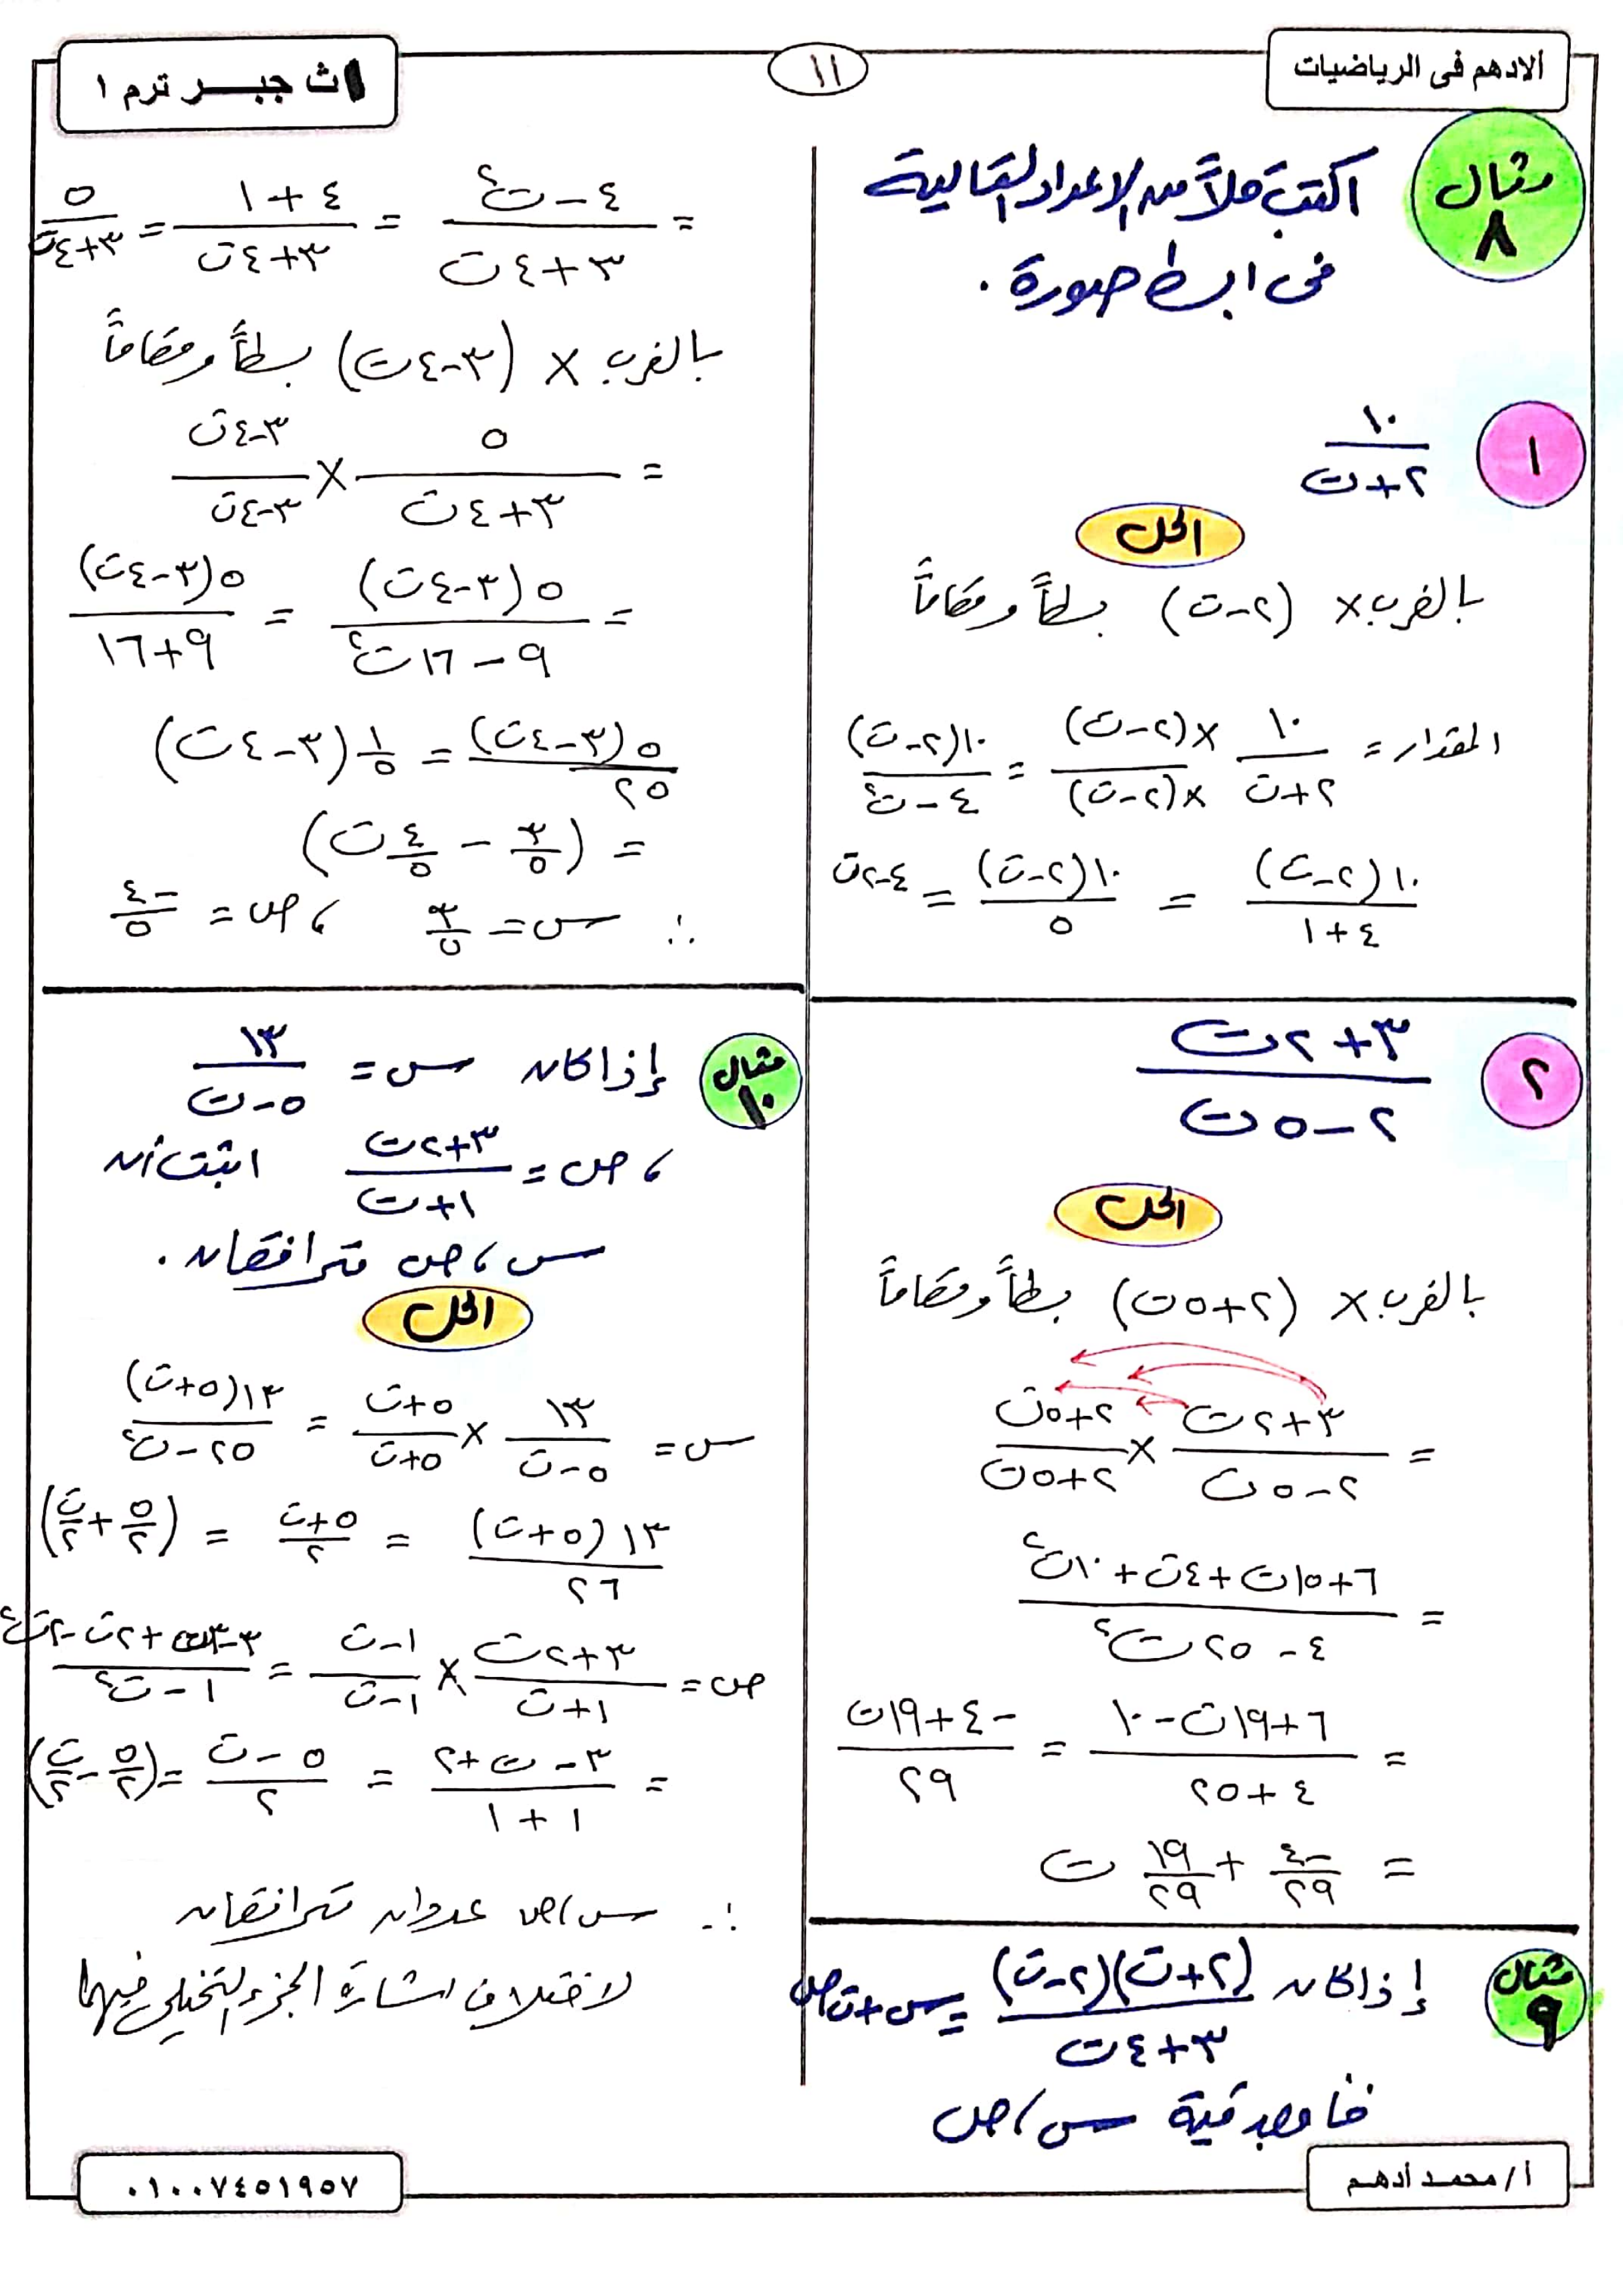 ألادهم فى الرياضيات
١١
١ث جبــر ترم ١
مثال ٨
اكتب كلاً من الاعداد التالية
فى ابسط صورة .
١
١٠ / (٢+ت)
الحل
بالضرب × (٢-ت) بسطاً ومقاماً
المقدار = ١٠ / (٢+ت) × (٢-ت) / ×(٢-ت) = ١٠(٢-ت) / (٤-ت٢)
١٠(٢-ت) / (٤+١) = ١٠(٢-ت) / ٥ = ٤-٢ت
٢
(٣+٢ت) / (٢-٥ت)
الحل
بالضرب × (٢+٥ت) بسطاً ومقاماً
= (٣+٢ت) / (٢-٥ت) × (٢+٥ت) / (٢+٥ت)
= (٦+١٥ت+٤ت+١٠ت٢) / (٤-٢٥ت٢)
= (٦+١٩ت-١٠) / (٤+٢٥) = (-٤+١٩ت) / ٢٩
= -٤/٢٩ + ١٩/٢٩ ت
مثال ٩
إذا كان (٢+ت)(٢-ت) / (٣+٤ت) = س+ت ص
فأوجد قيمة س، ص
= (٤-ت٢) / (٣+٤ت) = (٤+١) / (٣+٤ت) = ٥ / (٣+٤ت)
بالضرب × (٣-٤ت) بسطاً ومقاماً
= ٥ / (٣+٤ت) × (٣-٤ت) / (٣-٤ت)
= ٥(٣-٤ت) / (٩-١٦ت٢) = ٥(٣-٤ت) / (٩+١٦)
٥(٣-٤ت) / ٢٥ = ١/٥ (٣-٤ت)
= (٣/٥ - ٤/٥ ت)
∴ س = ٣/٥ ، ص = -٤/٥
مثال ١٠
إذا كان س = ١٣ / (٥-ت)
، ص = (٣+٢ت) / (١+ت) اثبت أن
س، ص مترافقان .
الحل
س = ١٣ / (٥-ت) × (٥+ت) / (٥+ت) = ١٣(٥+ت) / (٢٥-ت٢)
١٣(٥+ت) / ٢٦ = (٥+ت) / ٢ = (٥/٢ + ت/٢)
ص = (٣+٢ت) / (١+ت) × (١-ت) / (١-ت) = (٣-٣ت+٢ت-٢ت٢) / (١-ت٢)
= (٣-ت+٢) / (١+١) = (٥-ت) / ٢ = (٥/٢ - ت/٢)
∴ س، ص عددان مترافقان
لاختلاف اشارة الجزء التخيلى فيهما
أ/ محمد أدهم
٠١٠٠٧٤٥١٩٥٧